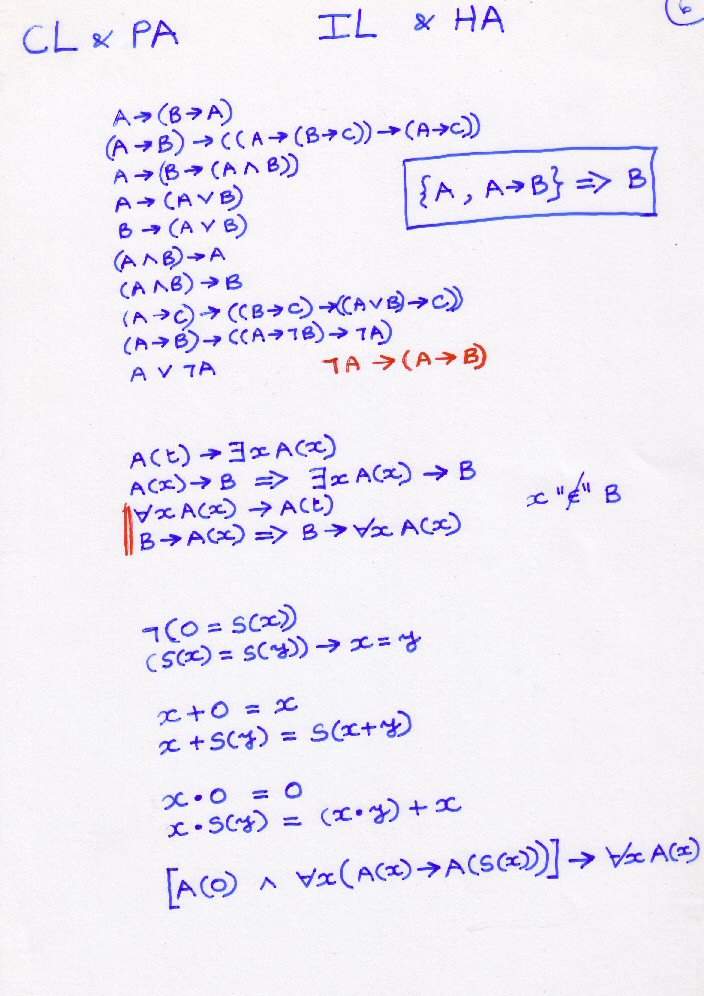 6
CL & PA IL & HA
A→(B→A)
(A→B)→((A→(B→C))→(A→C))
A→(B→(A∧B))
{A, A→B} => B
A→(A∨B)
B→(A∨B)
(A∧B)→A
(A∧B)→B
(A→C)→((B→C)→((A∨B)→C))
(A→B)→((A→¬B)→¬A)
A ∨ ¬A ¬A→(A→B)
A(t)→∃xA(x)
A(x)→B => ∃xA(x)→B
x "∉" B
∀xA(x)→A(t)
B→A(x) => B→∀xA(x)
¬(0 = S(x))
(S(x) = S(y))→x = y
x+0 = x
x+S(y) = S(x+y)
x•0 = 0
x•S(y) = (x•y)+x
[A(0) ∧ ∀x(A(x)→A(S(x)))]→∀xA(x)